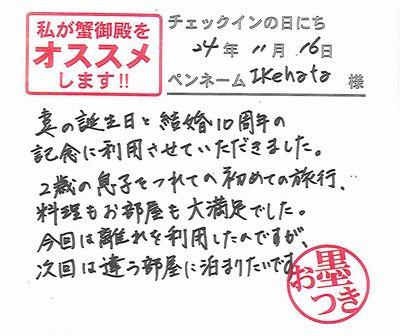 私が蟹御殿を
オススメ
します!!
チェックインの日にち
24年 11月 16日
ペンネーム Ikehata 様
妻の誕生日と結婚10周年の
記念に利用させていただきました。
2歳の息子をつれての初めての旅行、
料理もお部屋も大満足でした。
今回は離れを利用したのですが、
次回は違う部屋に泊まりたいです
お墨つき